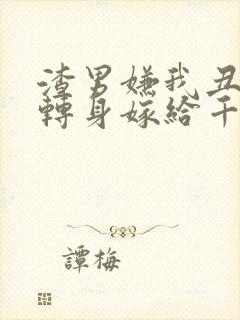 渣男嫌我丑
轉身嫁給千
譚梅